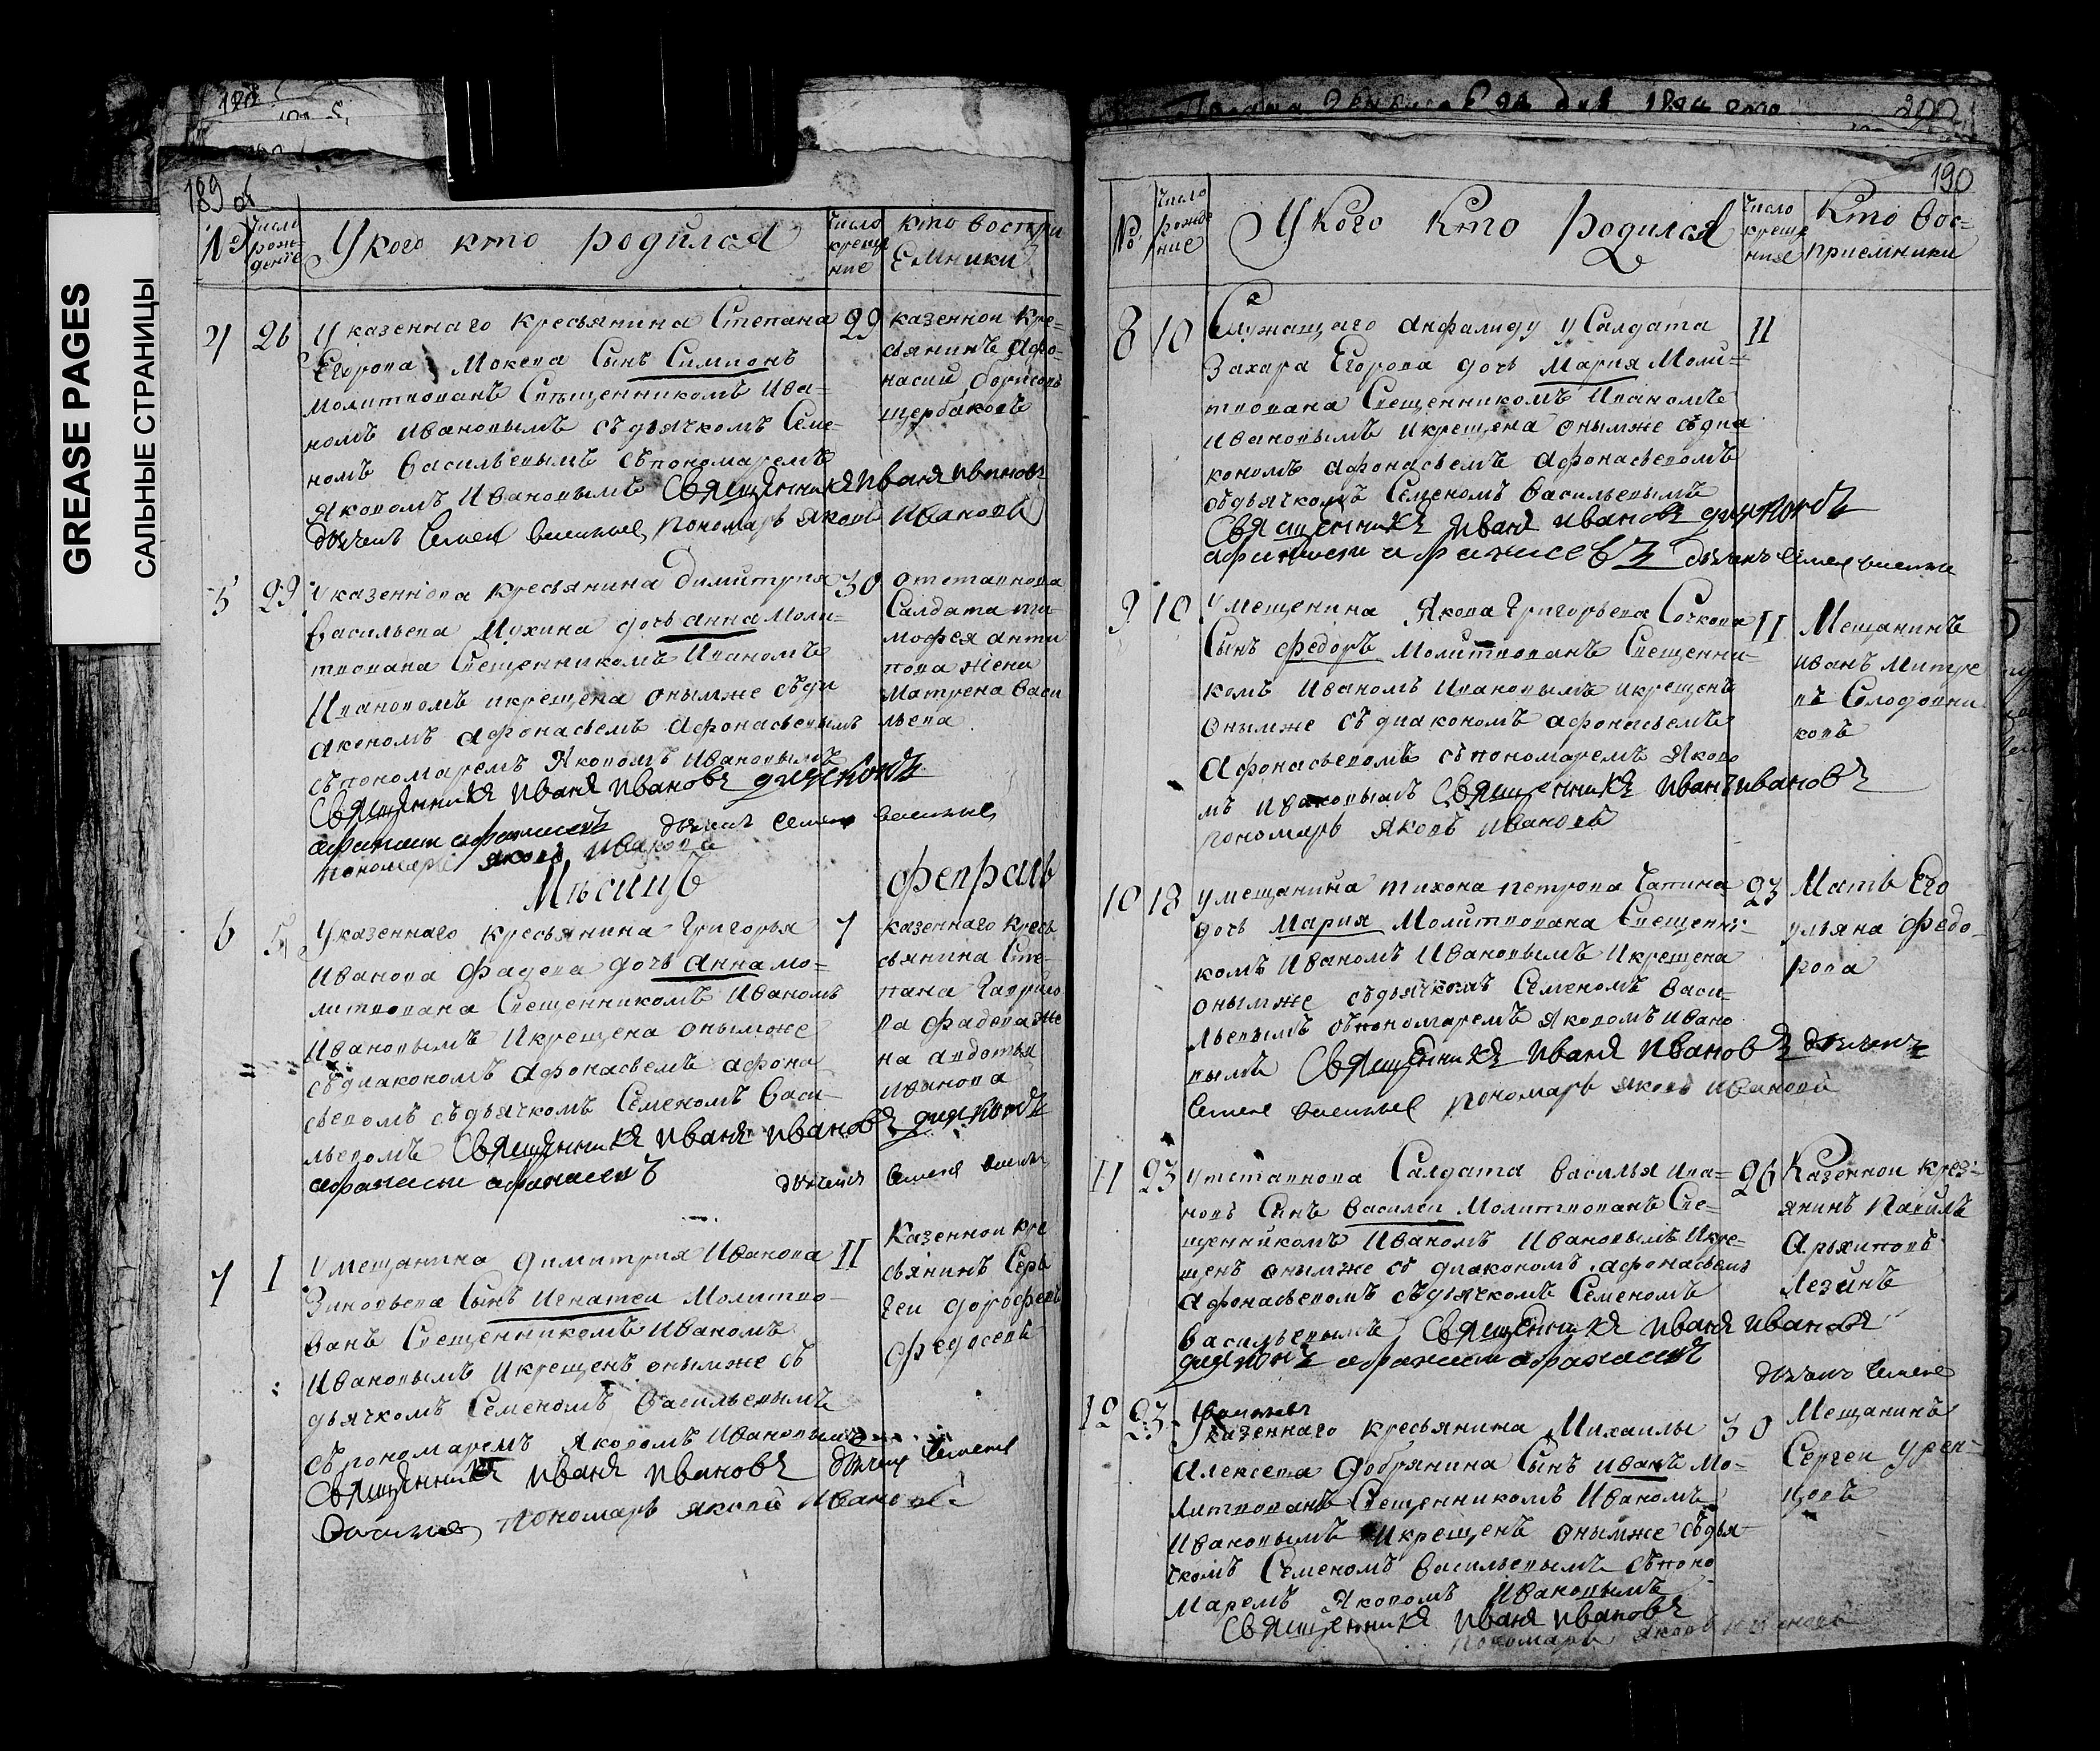 GREASE PAGES
САЛЬНЫЕ СТРАНИЦЫ
189 об
№
Число рождение
У кого кто родился
Число крещение
Кто восприемники
4
26
У казеннаго кресьянина Степана
Егорова Мокева Сынъ Симионъ
Молитвованъ Священникомъ Ива-
номъ Ивановымъ съ дьячкомъ Семе-
номъ Васильевымъ съ пономаремъ
Яковомъ Ивановымъ Священникъ Иванъ Ивановъ
дьячекъ Семен Васильев пономарь Яковъ Ивановъ
29
казеннои кре-
сьянинъ Афо-
насии борисовъ
щербаковъ
5
29
У казеннова кресьянина Димитрия
Васильева Мухина дочь анна Моли-
твована Свещенникомъ Иваномъ
Ивановомъ икрещена онымже съди
акономъ Афонасьемъ Афонасьевымъ
съ пономаремъ Яковомъ Ивановымъ
Священникъ Иванъ Ивановъ диаконъ
афанасии афанасьевъ дьячекъ Семен Васильев
пономарь Яковъ Ивановъ
30
отставнова
Салдата ти-
мофея анти
пова жена
Матрена Васи
льева
Месяцъ февраль
6
5
У казеннаго кресьянина Григорья
Иванова Фадеева дочь Анна мо=
литвована Свещенникомъ Иваномъ
Ивановымъ Икрещена онымже
съдиакономъ Афонасьемъ афона
сьевомъ съдьячкомъ Семеномъ Васи-
льевомъ Священникъ Иванъ Ивановъ диаконъ
афанасии афанасьевъ дьячекъ Семенъ Васильев
7
казеннаго кресь
сьянина Сте-
пана Гаврило
ва фадеева же
на авдотья
Иванова
7
1
У мещанина Димитрия Иванова
Зиновьева Сынъ Игнатеи Молитво-
ванъ Свещенникомъ Иваномъ
Ивановымъ Икрещенъ онымже съ
дьячкомъ Семеномъ Васильевымъ
съ пономаремъ Яковомъ Ивановымъ
Священникъ Иванъ Ивановъ дьячекъ Семенъ
Васильев пономарь Яковъ Ивановъ
11
Казеннои кре
сьянинъ Сер
геи дорофеевъ
федосеевъ
200
190
№
Число рожде ние
У кого кто родился
Число креще ние
Кто вос=
приемники
8
10
Служащаго Инфалиду у Салдата
Захара Егорова дочь Мария Моли=
твована Свещенникомъ Иваномъ
Ивановымъ икрещена онымже съдиа
кономъ Афонасьемъ Афонасьевомъ
съдьячкомъ Семеномъ Васильевымъ
Священникъ Иванъ Ивановъ диаконъ
афанасии афанасьевъ дьячекъ Семен Васильев
11
9
10
У мещенина Якова Григорьева Сочкова
Сынъ федоръ Молитвованъ Свещенни-
комъ Иваномъ Ивановымъ икрещенъ
онымже съ диакономъ афонасьемъ
Афонасьевомъ съ пономаремъ Яково
мъ Ивановымъ Священникъ Иванъ Ивановъ
пономарь Яковъ Ивановъ
11
Мещанинъ
иванъ Митре
въ Солодовни
ковъ
10
18
У мещанина тихона петрова Чапина
дочь Мария Молитвована Свещенни-
комъ Иваномъ Ивановымъ Икрещена
онымже съдьячкомъ Семеномъ Васи-
льевымъ съпономаремъ Яковомъ Ивано
вымъ Священникъ Иванъ Ивановъ дьячекъ
Семен Васильев пономарь Яковъ Ивановъ
23
Мать Его
ульяна Федо-
рова
11
23
У отставнова Салдата Василья Ива=
новъ Сынъ Василеи Молитвованъ Све=
щенникомъ Иваномъ Ивановымъ Икре=
щенъ онымже съ диакономъ афонасьемъ
Афонасьевомъ съдьячкомъ Семеномъ
Васильевымъ Священникъ Иванъ Ивановъ
диаконъ афанасии афанасьевъ
дьячекъ Семенъ
Васильев
26
Казеннои крес-
янинъ Павилъ
Архиповъ
Лезинъ
12
23
У казеннаго кресьянина Михаилы
Алексева Добрянина Сынъ иванъ Мо-
литвованъ Свещенникомъ Иваномъ
Ивановымъ Икрещенъ онымже съдья
чкомъ Семеномъ Васильевымъ съпоно
маремъ Яковомъ Ивановымъ
Священникъ Иванъ Ивановъ
пономарь Яковъ Ивановъ
30
Мещанинъ
Сергеи Урев-
цовъ